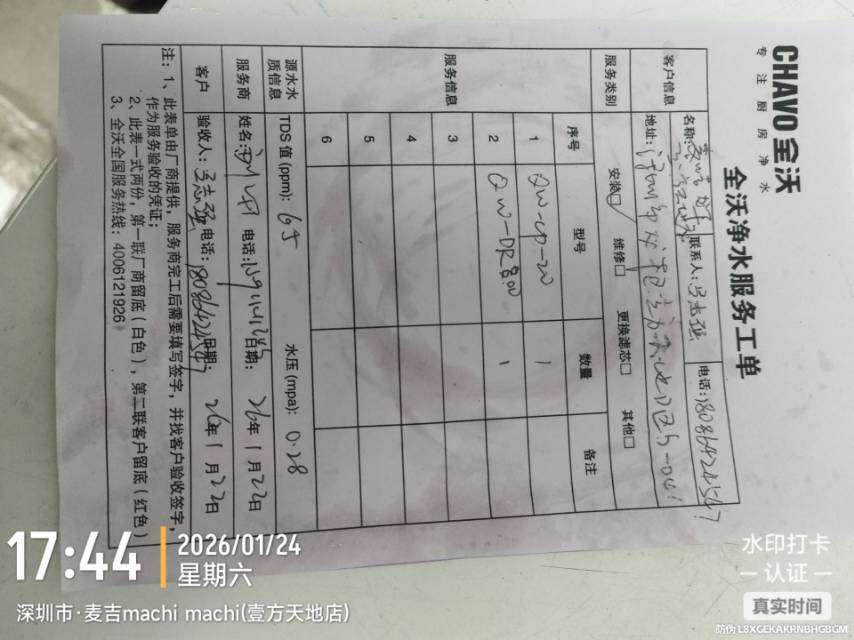 CHAVO 全沃
专注厨房净水
全沃净水服务工单
客户信息
名称:
联系人: 马志强
电话: 18086424547
地址:
服务类别
安装☑ 维修□ 更换滤芯□ 其他□
服务信息
序号 型号 数量 备注
1 QW-CP-20 1
2 QW-DR800 1
3
4
5
6
源水水质信息
TDS 值 (ppm): 65 水压 (mpa): 0.28
服务商
姓名: 电话: 日期: 26年1月22日
客户
验收人: 马志强 电话: 18086424547 日期: 26年1月22日
注: 1、此表单由厂商提供，服务商完工后需要填写签字，并找客户验收签字，
作为服务验收的凭证；
2、此表一式两份，第一联厂商留底（白色），第二联客户留底（红色）
3、全沃全国服务热线: 4006121926
17:44
2026/01/24
星期六
深圳市·麦吉machi machi(壹方天地店)
水印打卡
认证
真实时间
防伪 L8XGEKAKRNBHGBGM